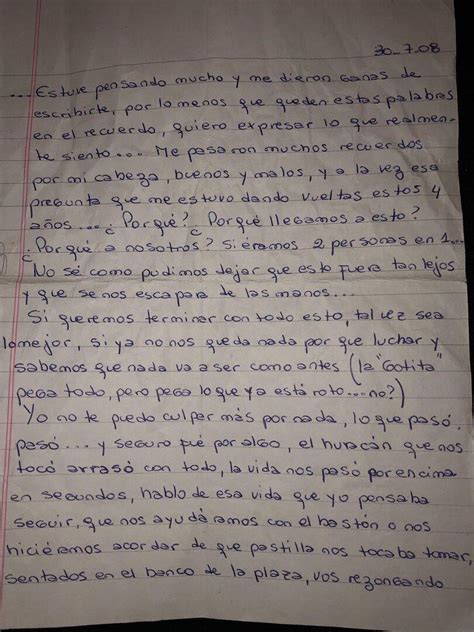 30-7.08
... Estuve pensando mucho y me dieron ganas de
escribirte, por lo menos que queden estas palabras
en el recuerdo, quiero expresar lo que realmen-
te siento.... Me pasaron muchos recuerdos
por mi cabeza, buenos y malos, y a la vez esa
pregunta que me estuvo dando vueltas estos 4
años... ¿Por qué? ¿Por qué llegamos a esto?
¿Por qué a nosotros? Si éramos 2 personas en 1....
No sé como pudimos dejar que esto fuera tan lejos
y que se nos escapara de las manos...
Si queremos terminar con todo esto, tal vez sea
lo mejor, si ya no nos queda nada por que luchar y
sabemos que nada va a ser como antes (la "Gotita"
pega todo, pero pega lo que ya está roto....no?)
Yo no te puedo culpar más por nada, lo que pasó,
pasó.... y seguro fué por algo, el huracán que nos
tocó arrasó con todo, la vida nos pasó por encima
en segundos, hablo de esa vida que yo pensaba
seguir, que nos ayudáramos con el bastón o nos
hiciéramos acordar de que pastilla nos tocaba tomar,
sentados en el banco de la plaza, vos rezongando